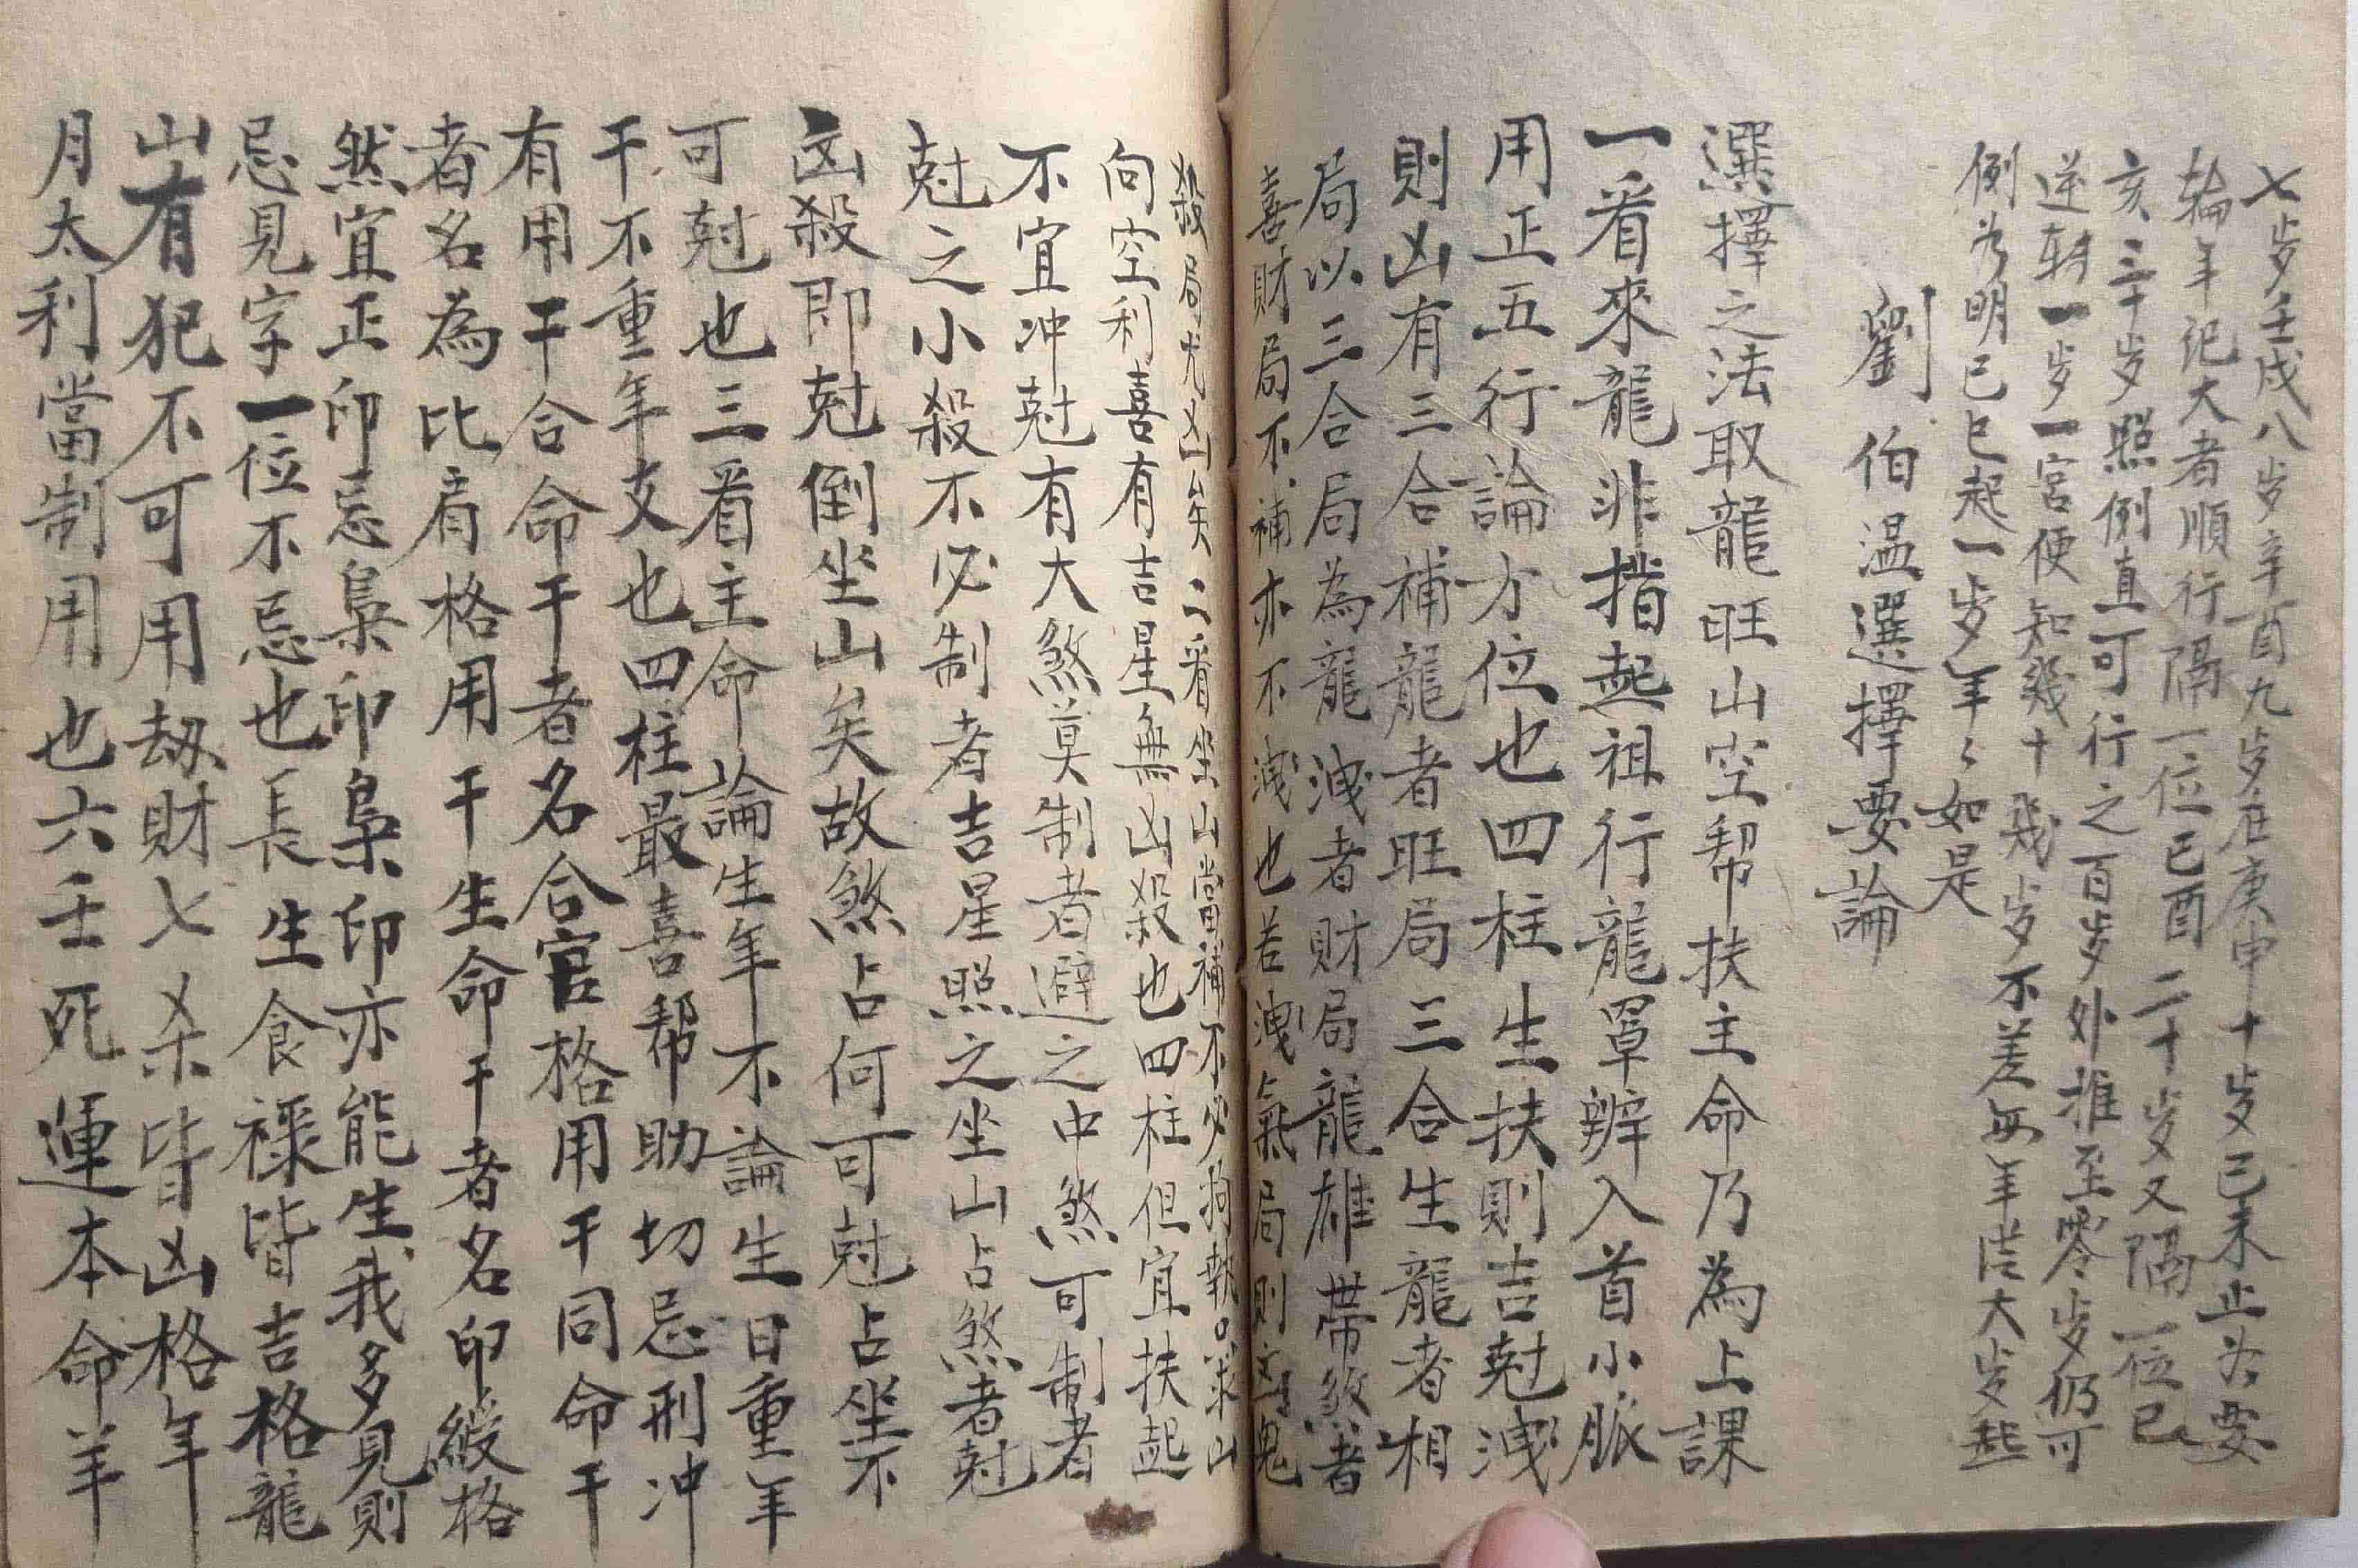 七岁壬戌八岁辛酉九岁在庚申十岁己未止若要
輪年记大者順行隔一位己酉二十岁又隔一位己
亥三十岁照例直可行之百岁外推至零岁仍可
逆转一岁一宮便知幾十幾岁不差每年従大岁起
例为明己巳起一岁年〻如是
劉伯温選擇要論
選擇之法取龍旺山空帮扶主命乃為上課
一看來龍非指起祖行龍單辨入首小脈
用正五行論方位也四柱生扶則吉尅洩
則凶有三合補龍者旺局三合生龍者相
局以三合局為龍洩者財局龍雄帶煞者
喜財局不補亦不洩也若洩氣局則凶鬼
殺局尤凶矣二看坐山當補不必拘執只求山
向空利喜有吉星無凶殺也四柱但宜扶起
不宜冲尅有大煞莫制者避之中煞可制者
尅之小殺不必制者吉星照之坐山占煞者尅
凶殺即尅倒坐山矣故煞占何可尅占坐不
可尅也三看主命論生年不論生日重年
干不重年支也四柱最喜帮助切忌刑冲
有用干合命干者名合官格用干同命干
者名為比肩格用干生命干者名印綬格
然宜正印忌梟印梟印亦能生我多見則
忌見字一位不忌也長生食祿皆吉格龍
山有犯不可用劫財七杀皆凶格年
月太利當制用也六壬死運本命羊